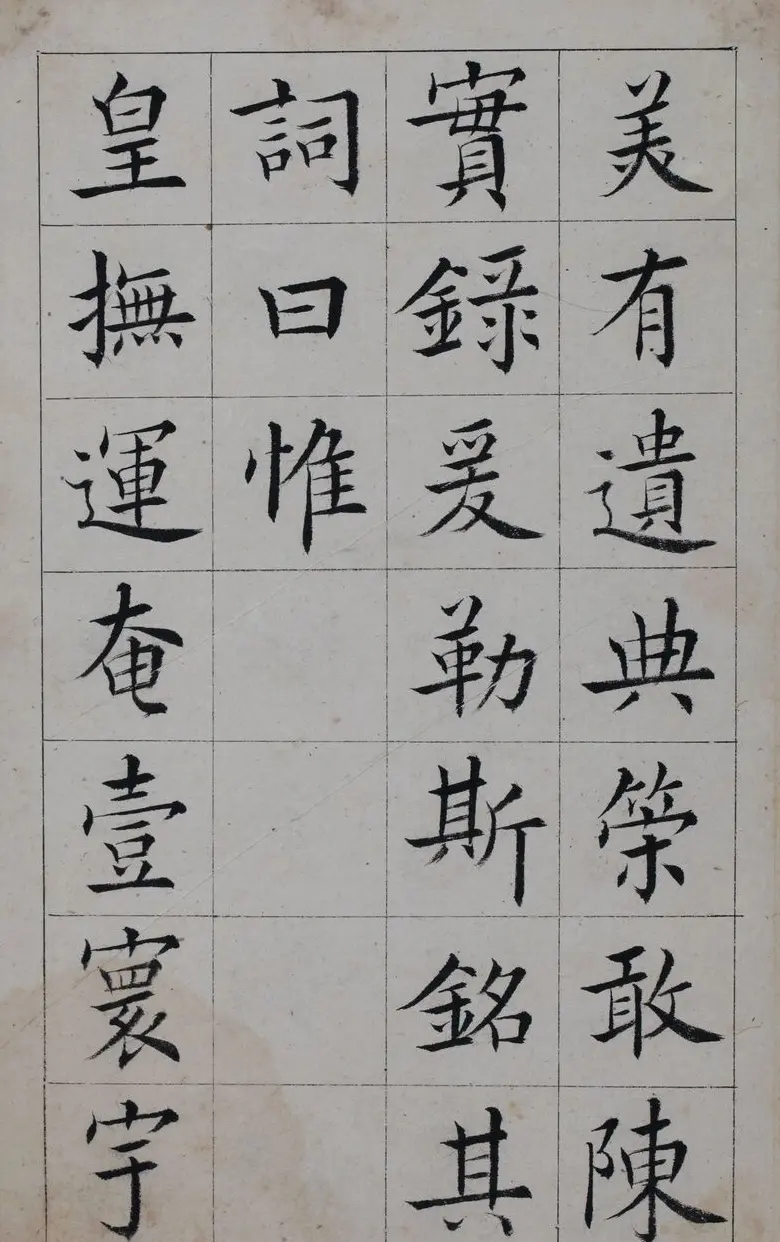 美有遺典策敢陳
實錄爰勒斯銘其
詞曰惟
皇撫運奄壹寰宇